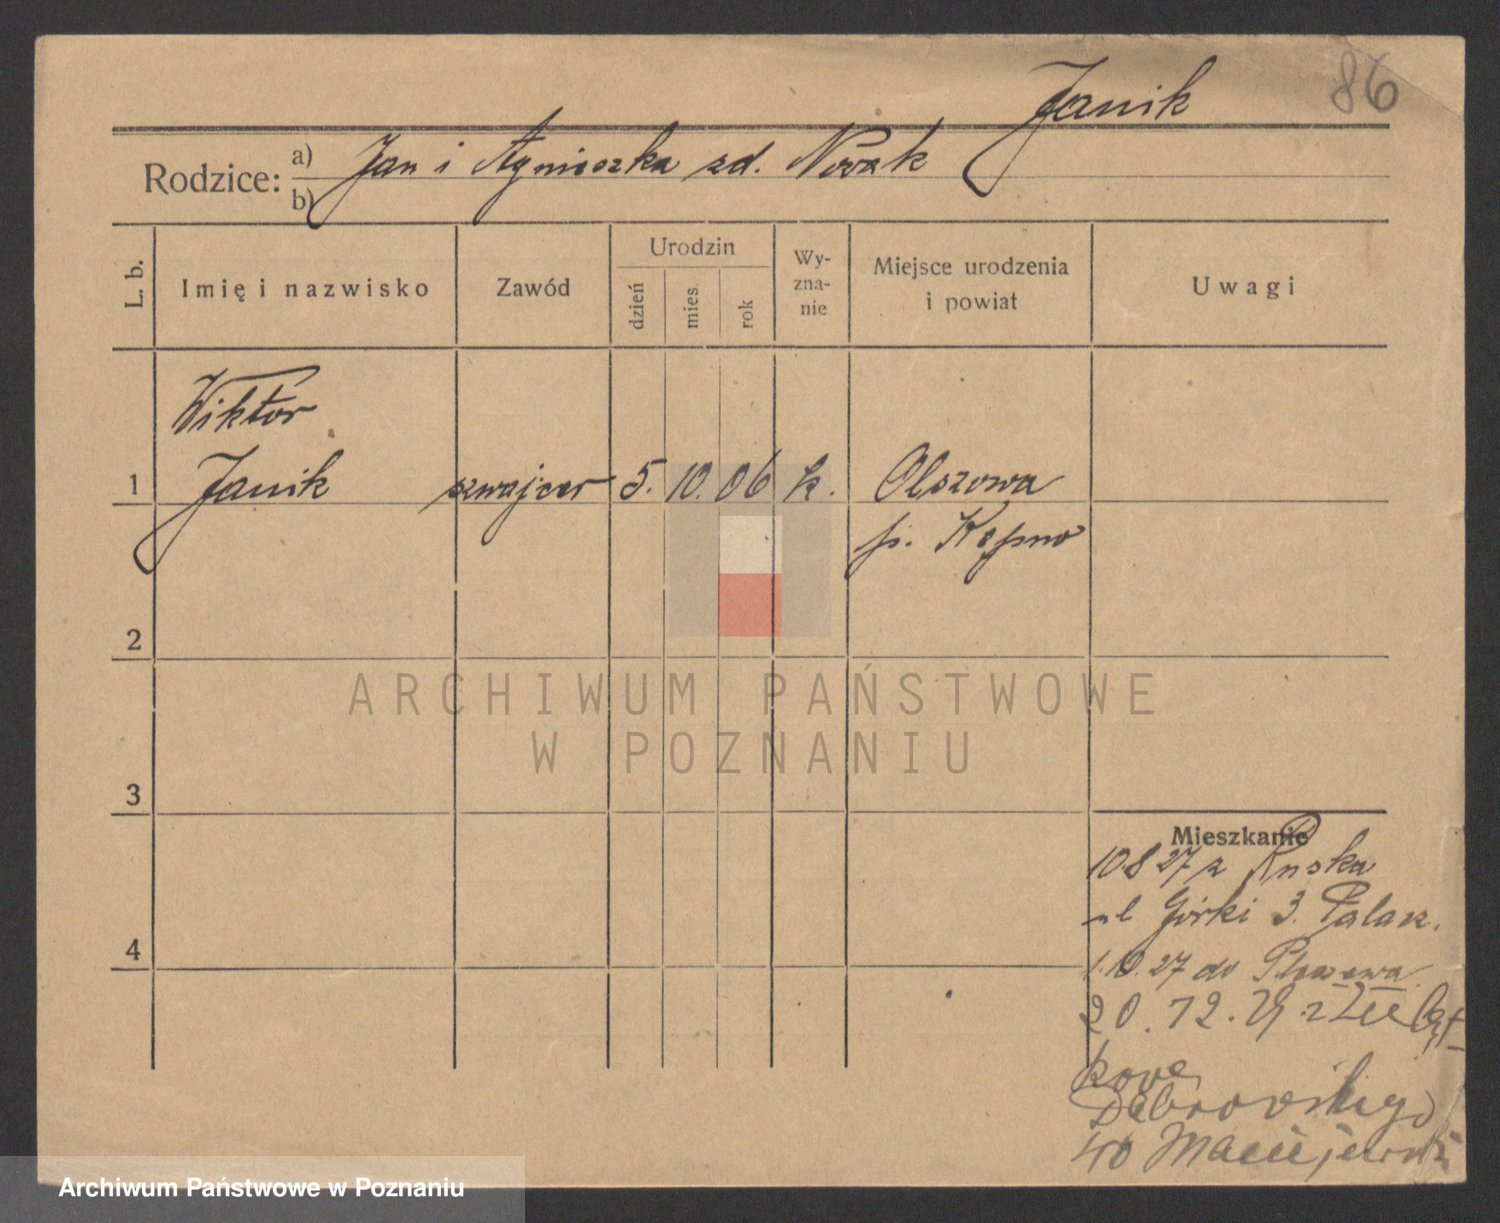 86
Janik
Rodzice: a) Jan i Agnieszka zd. Nowak
b)
L. b. Imię i nazwisko Zawód Urodzin dzień mies. rok Wy-zna-nie Miejsce urodzenia i powiat Uwagi
Wiktor
1 Janik szwajcer 5. 10. 06 k. Olszowa
p. Kępno
2
ARCHIWUM PAŃSTWOWE
W POZNANIU
3
Mieszkanie
10.8 27 z Ruska
ul Górki 3. Palacz.
4
1.10.27 do
20.12.
Dąbrowskiego
40 Maciejewski
Archiwum Państwowe w Poznaniu